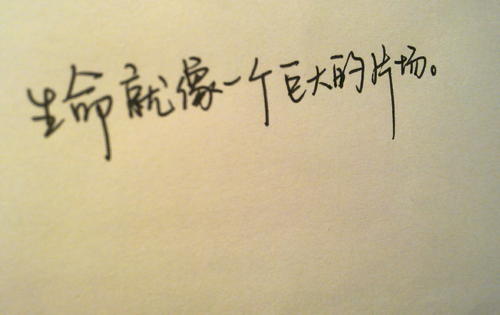 生命就像一个巨大的片场。